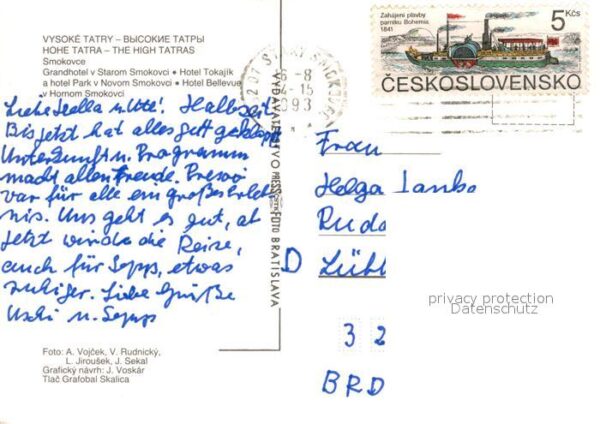 VYSOKÉ TATRY – ВЫСОКИЕ ТАТРЫ
HOHE TATRA – THE HIGH TATRAS
Smokovce
Grandhotel v Starom Smokovci • Hotel Tokajík
a hotel Park v Novom Smokovci • Hotel Bellevue
v Hornom Smokovci
Liebe Hella u. Ute! Halbzeit
Bis jetzt hat alles gut geklappt
Unterkunft u. Programm
macht allen Freude.
war für alle ein großes Erleb-
nis. Uns geht es gut, ab
jetzt wird die Reise,
auch für Sepp, etwas
ruhiger. Liebe Grüße
Uschi u. Sepp
Foto: A. Vojček, V. Rudnický,
L. Jiroušek, J. Sekal
Grafický návrh: J. Voskár
Tlač Grafobal Skalica
VYDAVATEĽSTVO PRESSFOTO BRATISLAVA
Zahájení plavby
parníku Bohemia
1841
5 Kčs
ČESKOSLOVENSKO
Frau
Helga
D
privacy protection
Datenschutz
3 2
BRD